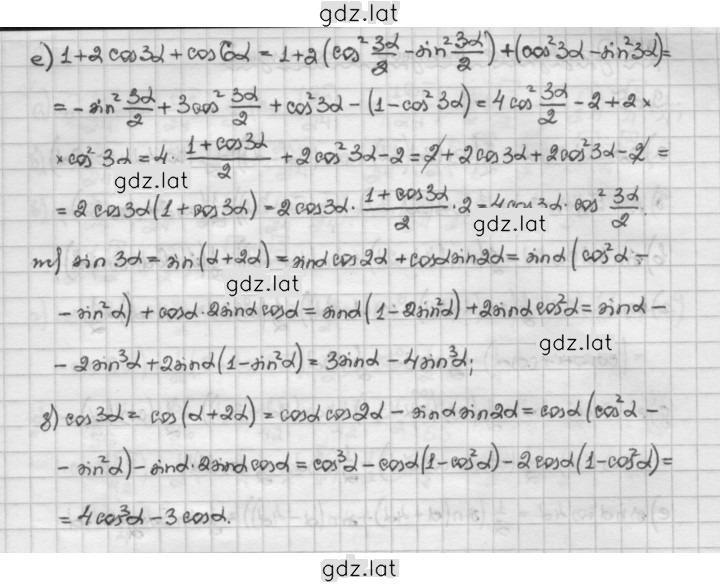 gdz.lat
е) 1+2 cos3α + cos6α = 1+2(cos² 3α/2 - sin² 3α/2) + (cos²3α - sin²3α) =
= - sin² 3α/2 + 3cos² 3α/2 + cos²3α - (1-cos²3α) = 4cos² 3α/2 - 2 + 2 ×
× cos² 3α = 4 · (1+cos3α)/2 + 2cos²3α - 2 = 2 + 2cos3α + 2cos²3α - 2 =
gdz.lat
= 2cos3α(1+cos3α) = 2cos3α · (1+cos3α)/2 · 2 = 4cos3α · cos² 3α/2.
gdz.lat
ж) sin 3α = sin(α+2α) = sinα cos2α + cosα sin2α = sinα (cos²α -
gdz.lat
- sin²α) + cosα · 2sinα cosα = sinα(1-2sin²α) + 2sinα cos²α = sinα -
gdz.lat
- 2sin³α + 2sinα(1-sin²α) = 3sinα - 4sin³α;
з) cos3α = cos(α+2α) = cosα cos2α - sinα sin2α = cosα(cos²α -
- sin²α) - sinα · 2sinα cosα = cos³α - cosα(1-cos²α) - 2cosα(1-cos²α) =
= 4cos³α - 3cosα.
gdz.lat